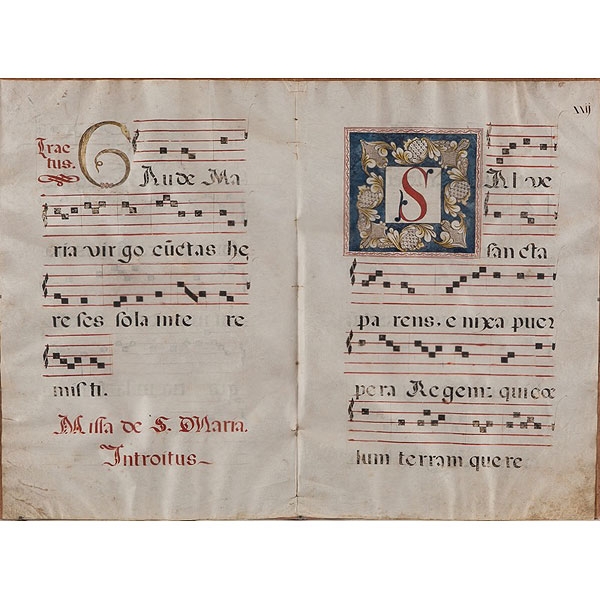 Trac
tus.
GAude Ma
ria virgo cūctas he
reſes sola inte re
miſti.
Miſſa de S. Maria.
Introitus
xxij
SAlve
ſancta
parens, enixa puer
pera Regem: qui cœ
lum terram que re